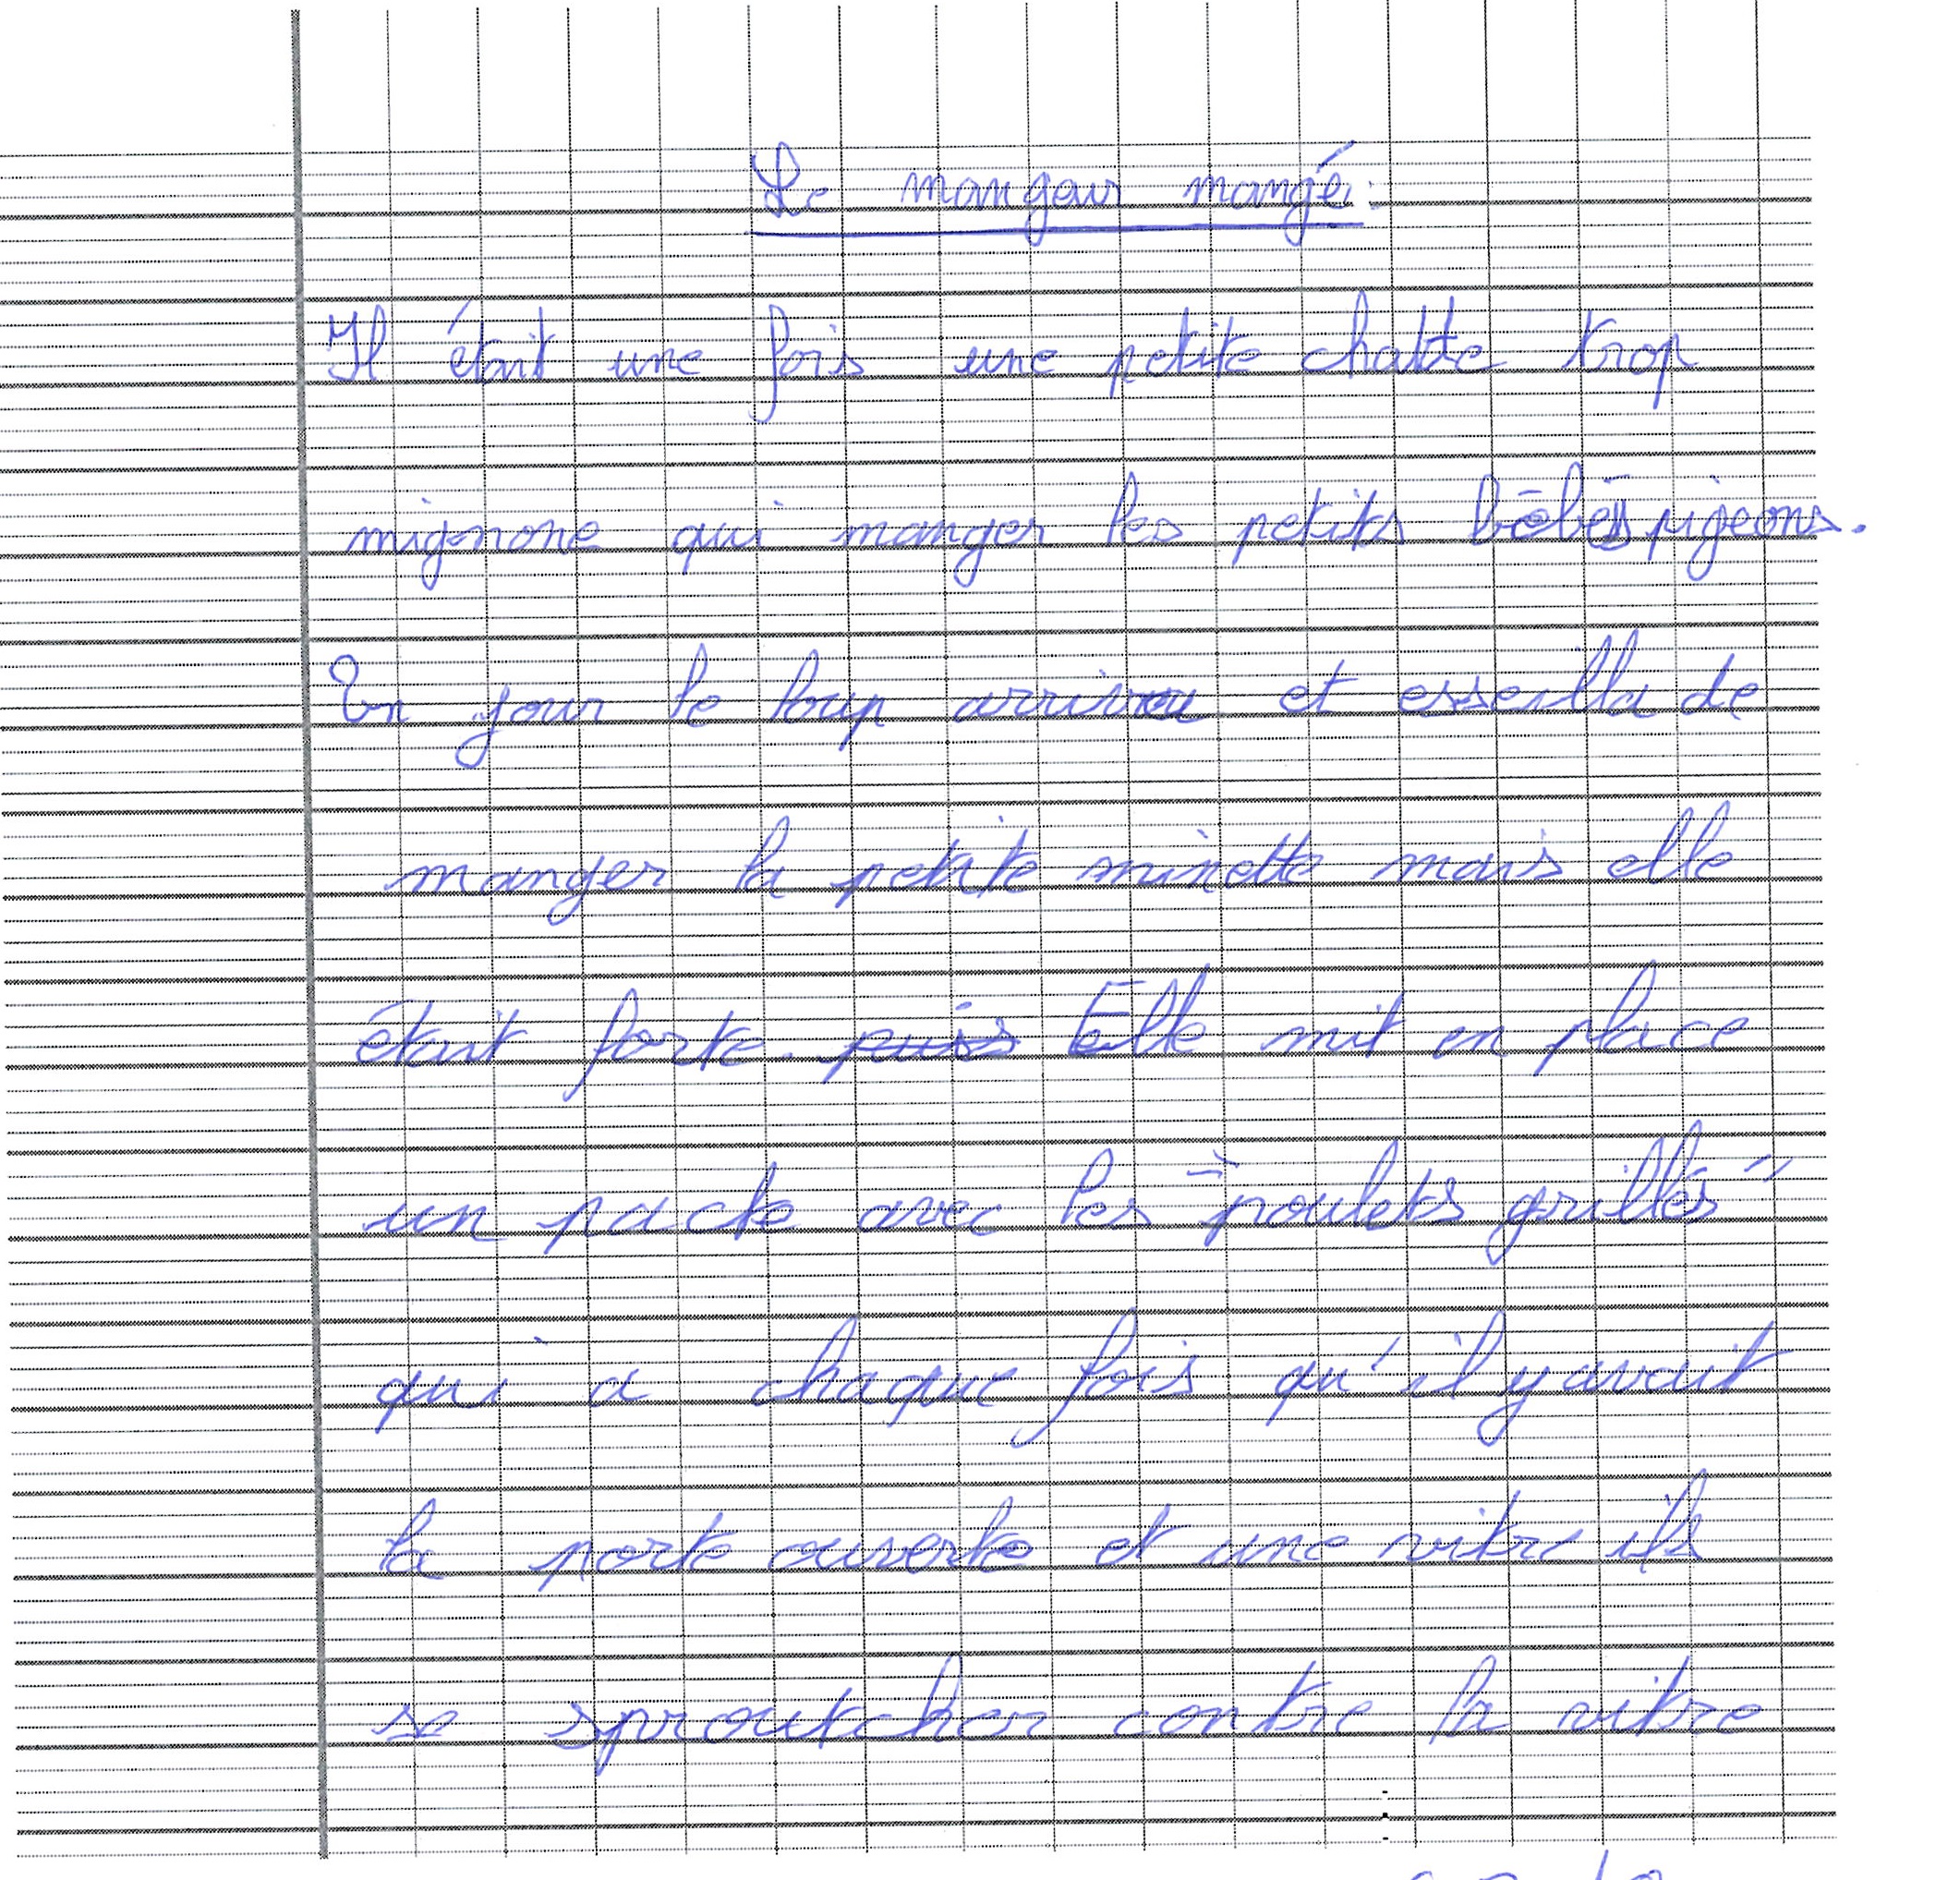 Le mangeur mangé :
Il était une fois une petite chatte trop
mignone qui manger les petits bébés pigeons.
Un jour le loup arriva et esseilla de
manger la petite minette mais elle
était forte. puis Elle mit en place
un pacte avec les "poulets grillés"
qui a chaque fois qu'il y avait
la porte ouverte et une vitre ils
se sproutcher contre la vitre